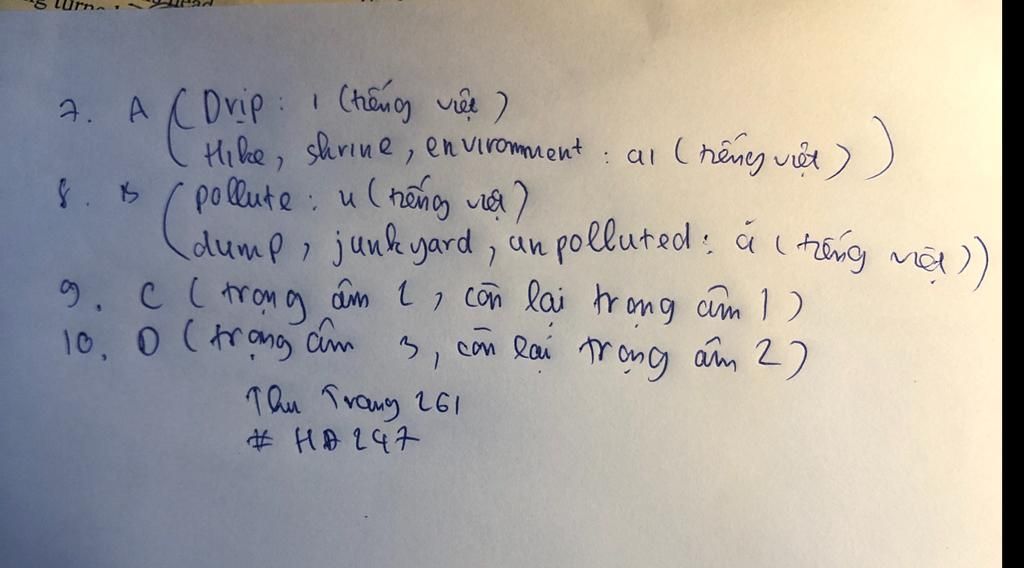 7. A (Drip: i (tiếng việt)
Hike, shrine, environment: ai (tiếng việt))
8. B (pollute: u (tiếng việt)
dump, junkyard, unpolluted: ă (tiếng việt))
9. C (trọng âm 2, còn lại trọng âm 1)
10. D (trọng âm 3, còn lại trọng âm 2)
Thu Trang 261
# HĐ 247